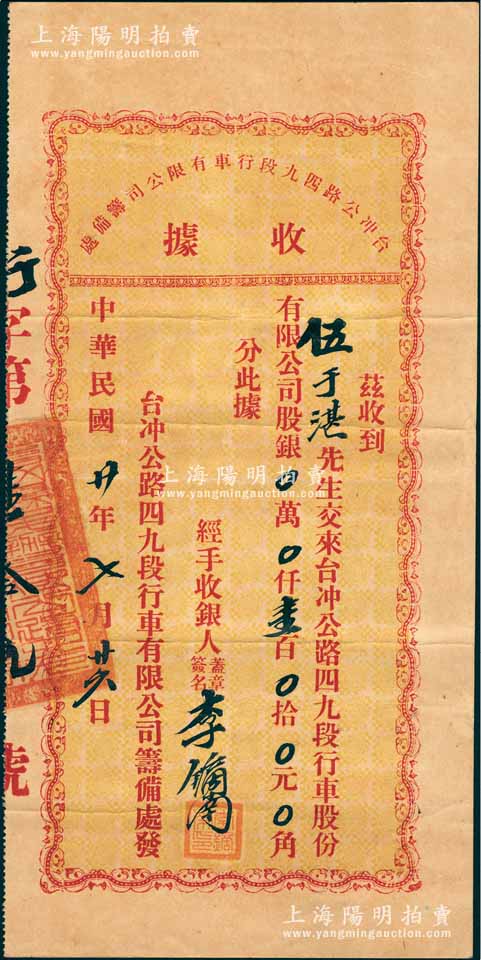 上海陽明拍賣
www.yangmingauction.com
台冲公路四九段行車有限公司籌備處
收據
茲收到
伍于湛先生交來台冲公路四九段行車股份
有限公司股銀0萬0仟壹百0拾0元0角
分此據
經手收銀人
蓋章
簽名
李
台冲公路四九段行車有限公司籌備處發
中華民國廿年七月廿六日
行字第
拾九
號
上海陽明拍賣
www.yangmingauction.com
上海陽明拍賣
www.yangmingauction.com